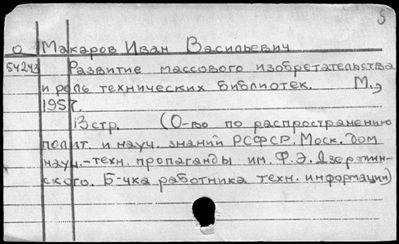 5
О Макаров Иван Васильевич
54243 Развитие массового изобретательства
и роль технических библиотек. М.,
1957.
13 стр. (О-во по распространению
полит. и науч. знаний РСФСР. Моск. дом
науч.-техн. пропаганды им. Ф.Э. Дзержин-
ского. Б-чка работника техн. информации)